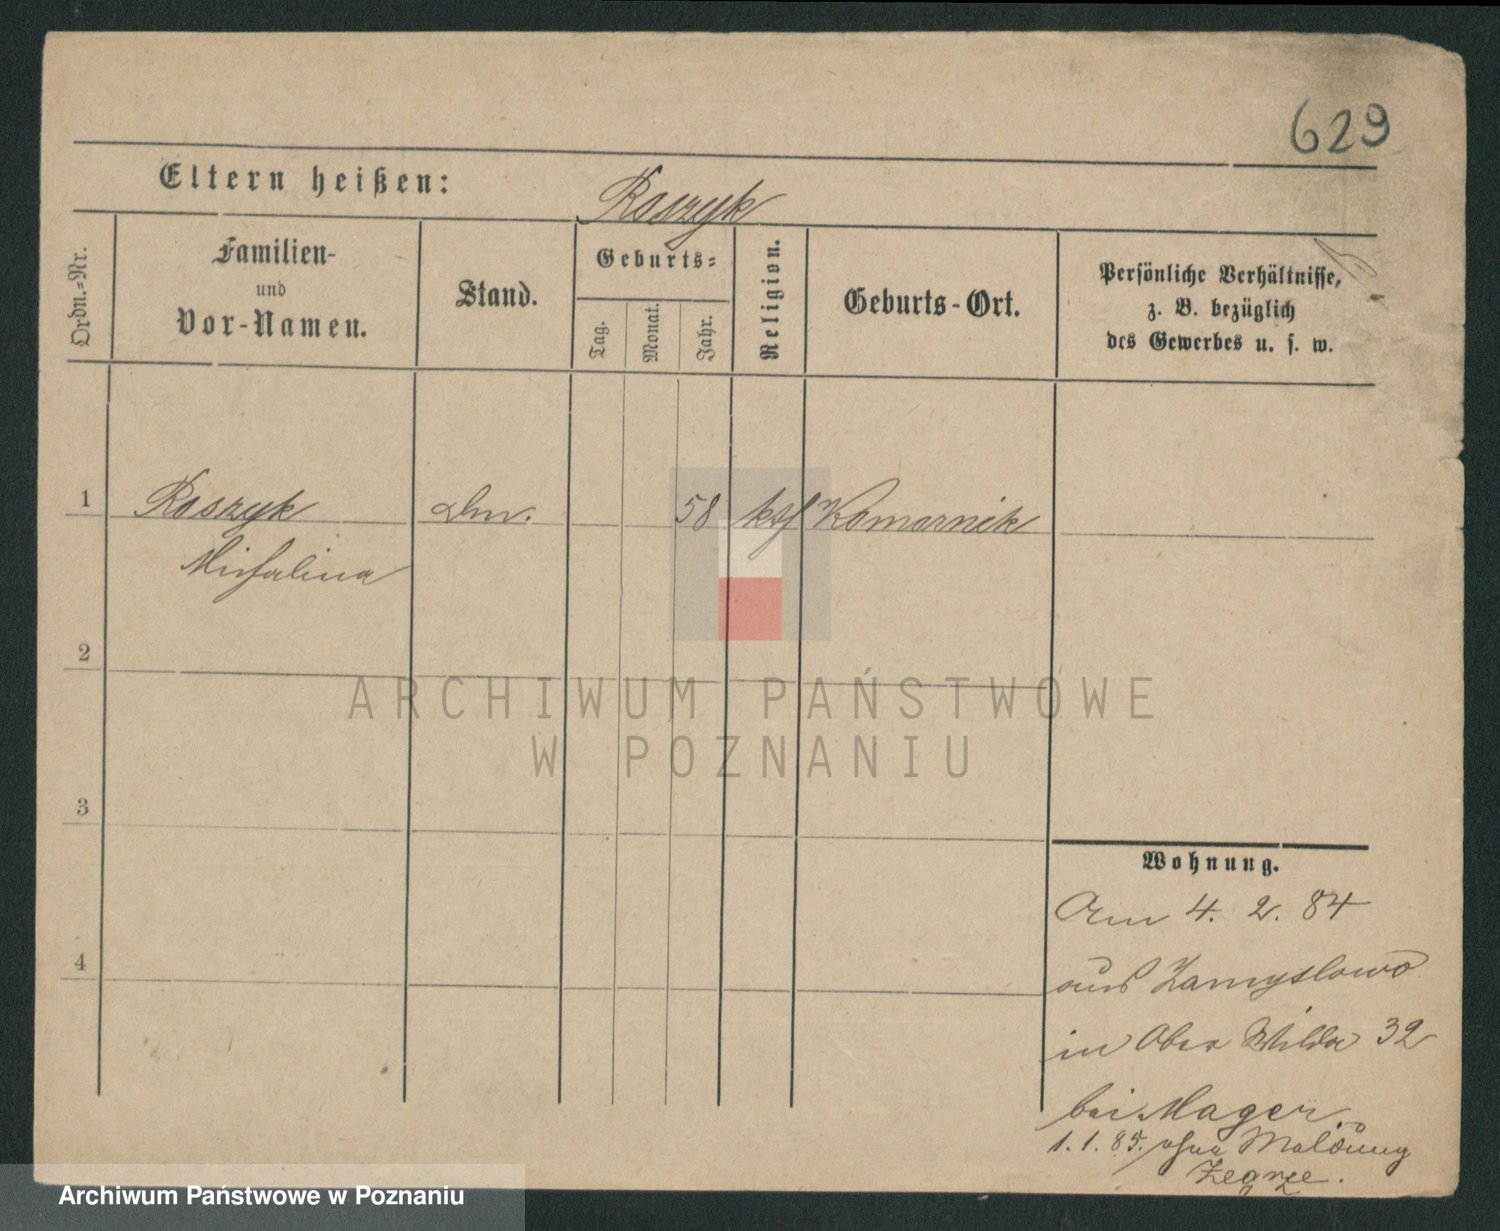 629
Eltern heißen: Roszyk
Ordn.-Nr.
Familien-
und
Vor-Namen.
Stand.
Geburts-
Tag.
Monat.
Jahr.
Religion.
Geburts-Ort.
Persönliche Verhältnisse,
z. B. bezüglich
des Gewerbes u. s. w.
1 Roszyk Dm. 58 kath Komornik
Michalina
2
3
4
ARCHIWUM PAŃSTWOWE
W POZNANIU
Wohnung.
Am 4. 2. 84
aus Zamyslowo
in Ober Wilda 32
bei Mager
1. 1. 85. ohne Meldung
Zegrze.
Archiwum Państwowe w Poznaniu